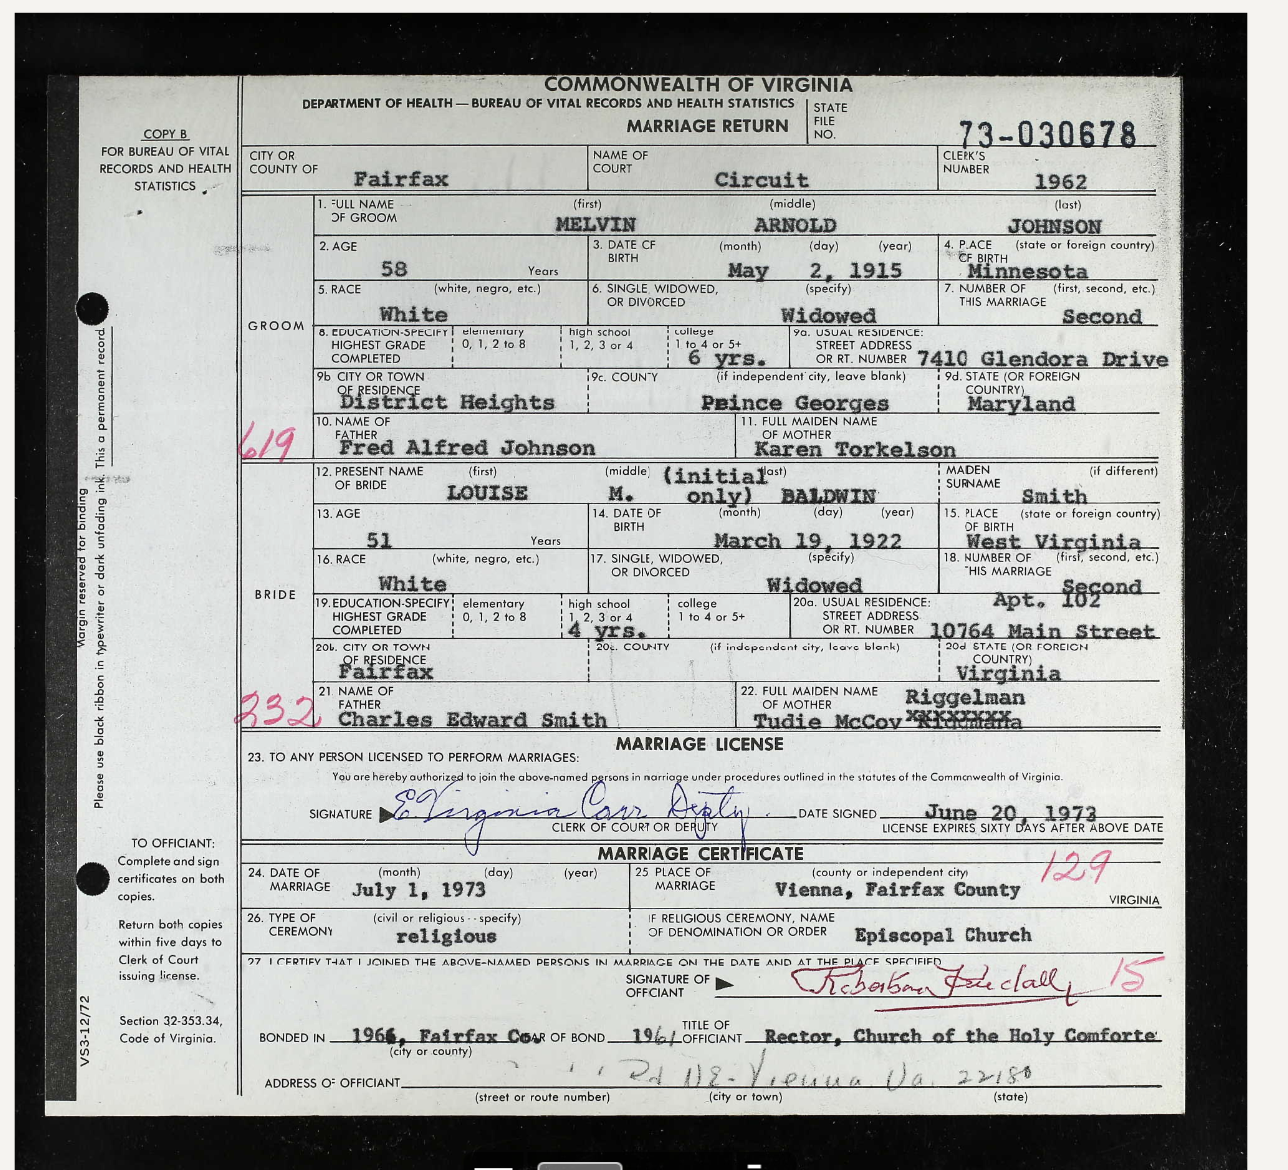 COMMONWEALTH OF VIRGINIA
DEPARTMENT OF HEALTH — BUREAU OF VITAL RECORDS AND HEALTH STATISTICS
MARRIAGE RETURN
STATE FILE NO. 73-030678
COPY B
FOR BUREAU OF VITAL
RECORDS AND HEALTH
STATISTICS
CITY OR COUNTY OF Fairfax
NAME OF COURT Circuit
CLERK'S NUMBER 1962
GROOM
1. FULL NAME OF GROOM (first) MELVIN (middle) ARNOLD (last) JOHNSON
2. AGE 58 Years
3. DATE OF BIRTH (month) (day) (year) May 2, 1915
4. PLACE OF BIRTH (state or foreign country) Minnesota
5. RACE (white, negro, etc.) White
6. SINGLE, WIDOWED, OR DIVORCED (specify) Widowed
7. NUMBER OF THIS MARRIAGE (first, second, etc.) Second
8. EDUCATION-SPECIFY HIGHEST GRADE COMPLETED elementary 0, 1, 2 to 8 high school 1, 2, 3 or 4 college 1 to 4 or 5+ 6 yrs.
9a. USUAL RESIDENCE: STREET ADDRESS OR RT. NUMBER 7410 Glendora Drive
9b CITY OR TOWN OF RESIDENCE District Heights
9c. COUNTY (if independent city, leave blank) Prince Georges
9d. STATE (OR FOREIGN COUNTRY) Maryland
10. NAME OF FATHER Fred Alfred Johnson
11. FULL MAIDEN NAME OF MOTHER Karen Torkelson
619
BRIDE
12. PRESENT NAME OF BRIDE (first) LOUISE (middle) M. (initial only) (last) BALDWIN
MAIDEN SURNAME (if different) Smith
13. AGE 51 Years
14. DATE OF BIRTH (month) (day) (year) March 19, 1922
15. PLACE OF BIRTH (state or foreign country) West Virginia
16. RACE (white, negro, etc.) White
17. SINGLE, WIDOWED, OR DIVORCED (specify) Widowed
18. NUMBER OF THIS MARRIAGE (first, second, etc.) Second
19. EDUCATION-SPECIFY HIGHEST GRADE COMPLETED elementary 0, 1, 2 to 8 high school 1, 2, 3 or 4 4 yrs. college 1 to 4 or 5+
20a. USUAL RESIDENCE: STREET ADDRESS OR RT. NUMBER Apt. 102 10764 Main Street
20b. CITY OR TOWN OF RESIDENCE Fairfax
20c. COUNTY (if independent city, leave blank)
20d STATE (OR FOREIGN COUNTRY) Virginia
21 NAME OF FATHER Charles Edward Smith
22. FULL MAIDEN NAME OF MOTHER Tudie McCoy Riggelman
232
MARRIAGE LICENSE
23. TO ANY PERSON LICENSED TO PERFORM MARRIAGES:
You are hereby authorized to join the above-named persons in marriage under procedures outlined in the statutes of the Commonwealth of Virginia.
SIGNATURE E Virginia Carr Depty DATE SIGNED June 20, 1973
CLERK OF COURT OR DEPUTY LICENSE EXPIRES SIXTY DAYS AFTER ABOVE DATE
MARRIAGE CERTIFICATE
24. DATE OF MARRIAGE (month) (day) (year) July 1, 1973
25 PLACE OF MARRIAGE (county or independent city) Vienna, Fairfax County VIRGINIA
129
26. TYPE OF CEREMONY (civil or religious -- specify) religious
IF RELIGIOUS CEREMONY, NAME OF DENOMINATION OR ORDER Episcopal Church
27 I CERTIFY THAT I JOINED THE ABOVE-NAMED PERSONS IN MARRIAGE ON THE DATE AND AT THE PLACE SPECIFIED
SIGNATURE OF OFFICIANT
15
BONDED IN 1961, Fairfax Co. YEAR OF BOND 1961 TITLE OF OFFICIANT Rector, Church of the Holy Comforte
(city or county)
ADDRESS OF OFFICIANT Rd NE - Vienna Va. 22180
(street or route number) (city or town) (state)
Margin reserved for binding
Please use black ribbon in typewriter or dark unfading ink. This a permanent record.
TO OFFICIANT:
Complete and sign
certificates on both
copies.
Return both copies
within five days to
Clerk of Court
issuing license.
Section 32-353.34,
Code of Virginia.
VS3-12/72